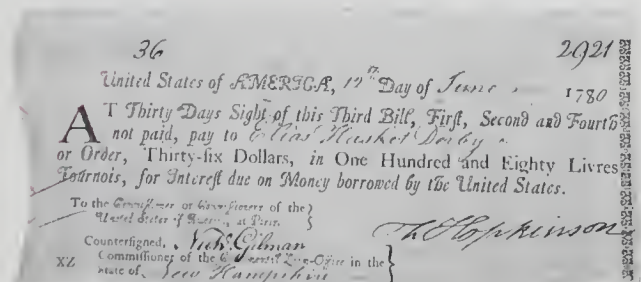 36 2921
United States of AMERICA, 12th Day of June 1780
AT Thirty Days Sight of this Third Bill, First, Second and Fourth
not paid, pay to Elias Hasket Derby
or Order, Thirty-six Dollars, in One Hundred and Eighty Livres
Tournois, for Interest due on Money borrowed by the United States.
To the Commissioner or Commissioners of the }
United States of America, at Paris. }
Countersigned, Nichs. Gilman
XZ Commissioner of the Continental Loan-Office in the }
State of New Hampshire
Hopkinson